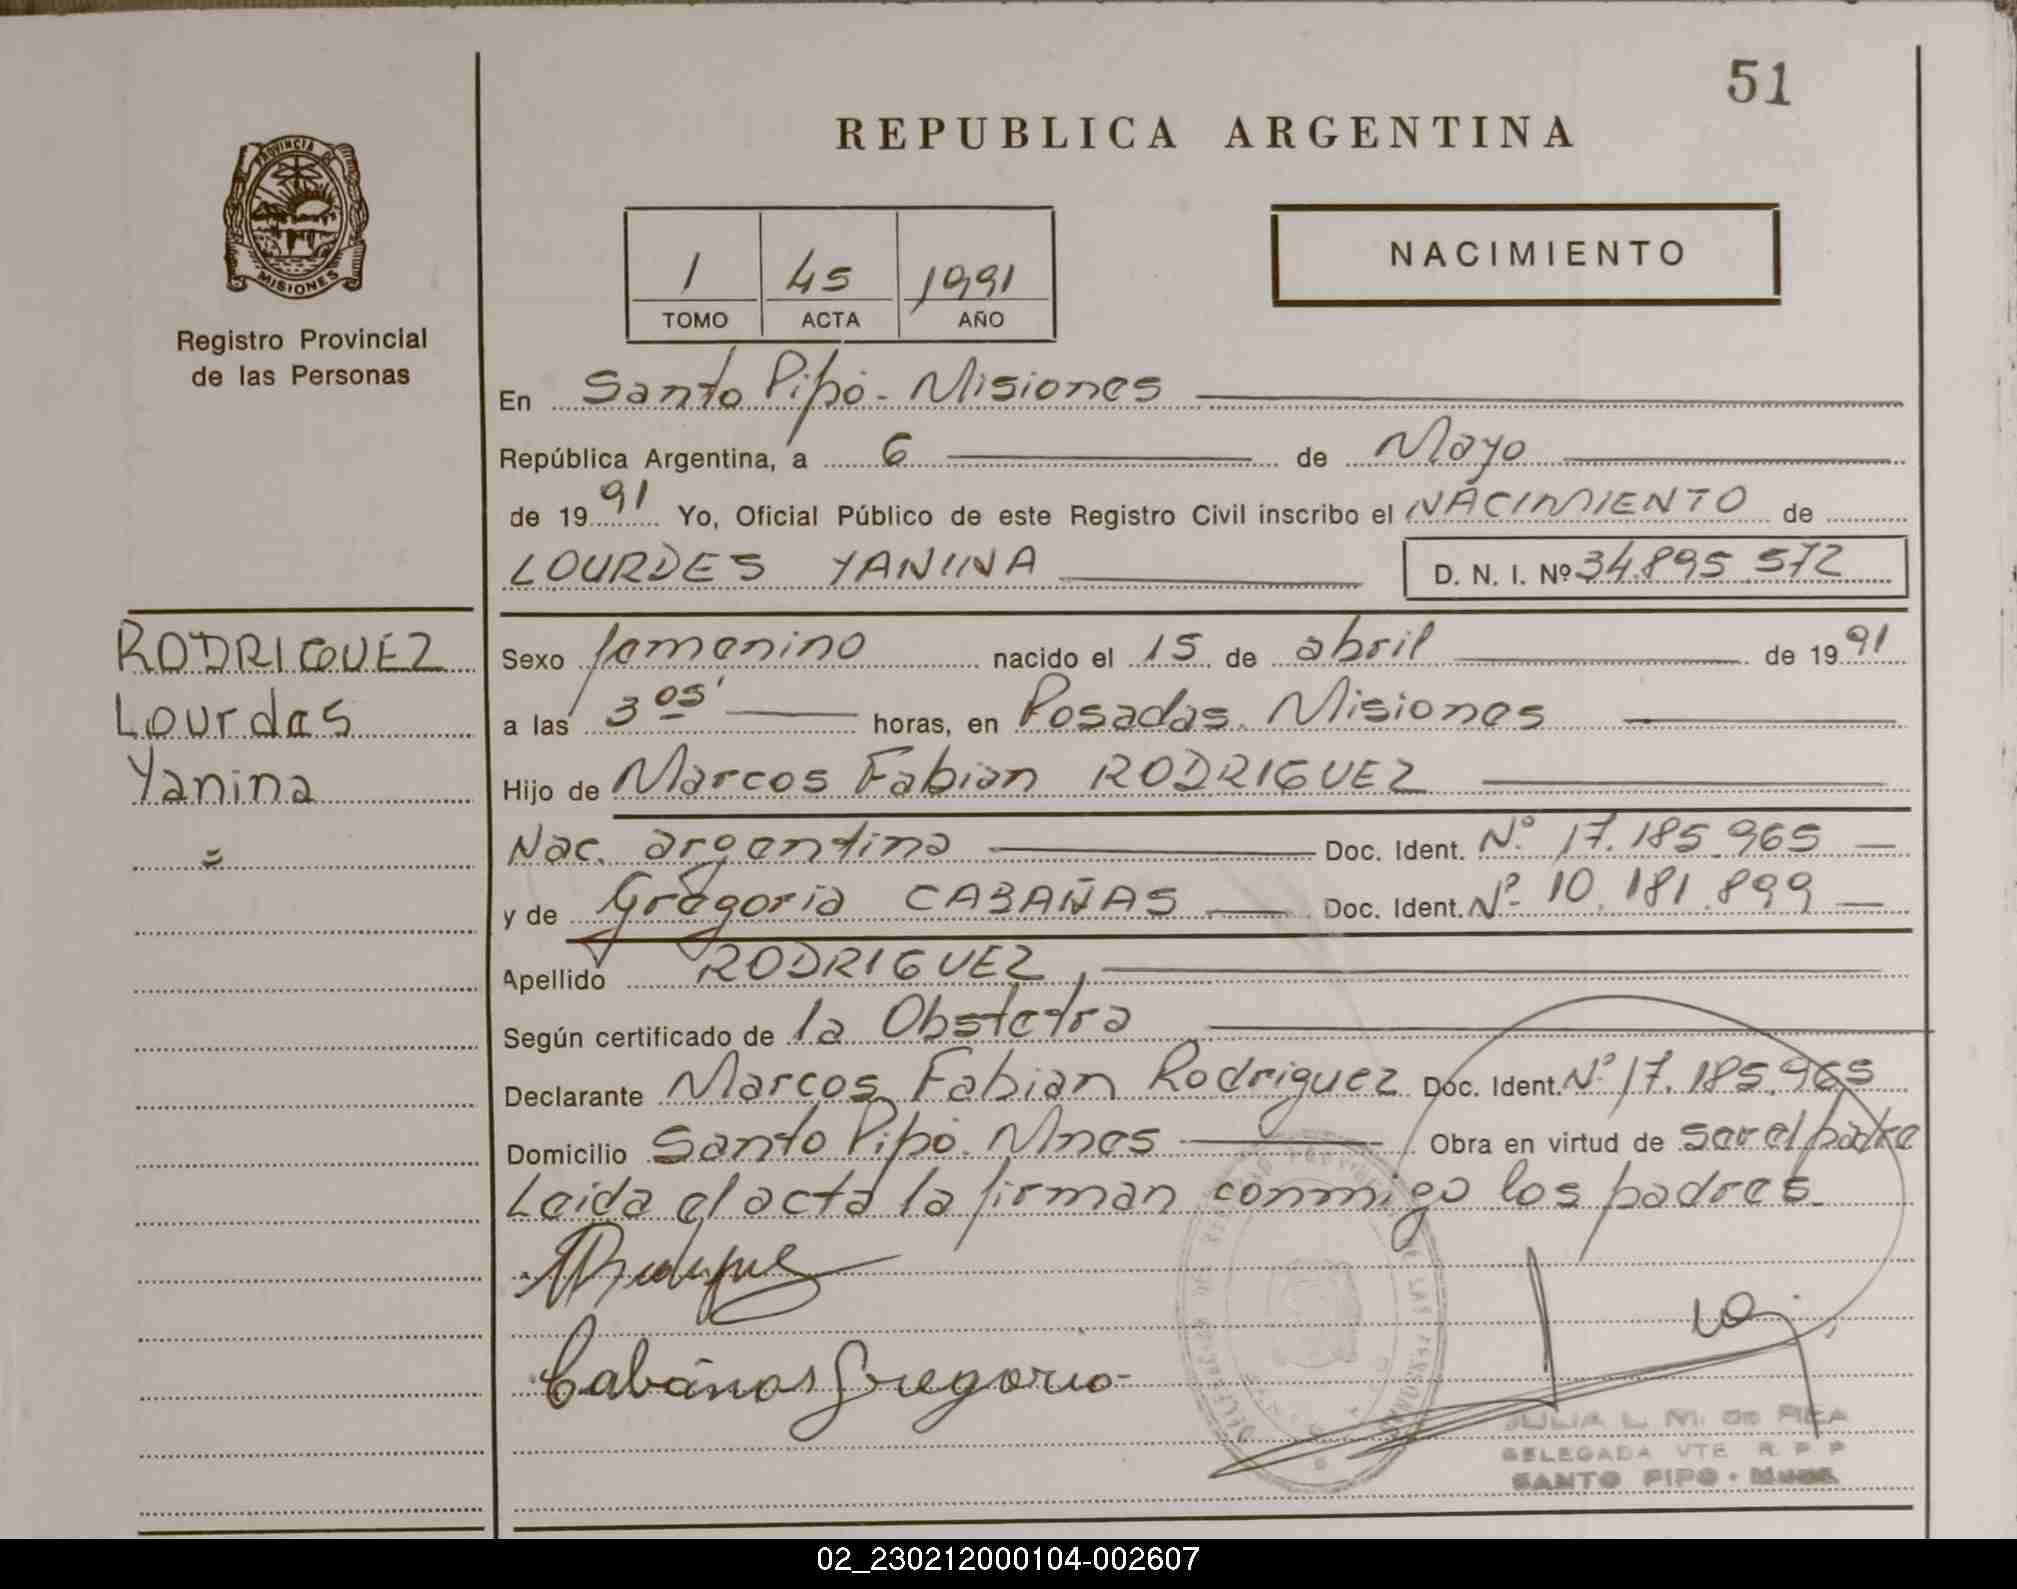 51
REPUBLICA ARGENTINA
PROVINCIA DE
MISIONES
Registro Provincial
de las Personas
1 45 1991
TOMO ACTA AÑO
NACIMIENTO
En Santo Pipó - Misiones
República Argentina, a 6 de Mayo
de 1991 Yo, Oficial Público de este Registro Civil inscribo el NACIMIENTO de
LOURDES YANINA D. N. I. Nº 34.895.572
RODRIGUEZ
Lourdes
Yanina
=
Sexo femenino nacido el 15 de abril de 1991
a las 3 05' horas, en Posadas. Misiones
Hijo de Marcos Fabian RODRIGUEZ
Nac. argentina Doc. Ident. Nº 17.185.965
y de Gregoria CABAÑAS Doc. Ident. Nº 10.181.899
Apellido RODRIGUEZ,
Según certificado de la Obstetra
Declarante Marcos Fabian Rodriguez Doc. Ident. Nº 17.185.965
Domicilio Santo Pipó. Mnes Obra en virtud de ser el padre
Leida el acta la firman conmigo los padres.
Cabañas Gregoria
JULIA L. M. de REA
DELEGADA VTE R P P
SANTO PIPO - Mnes
02_230212000104-002607